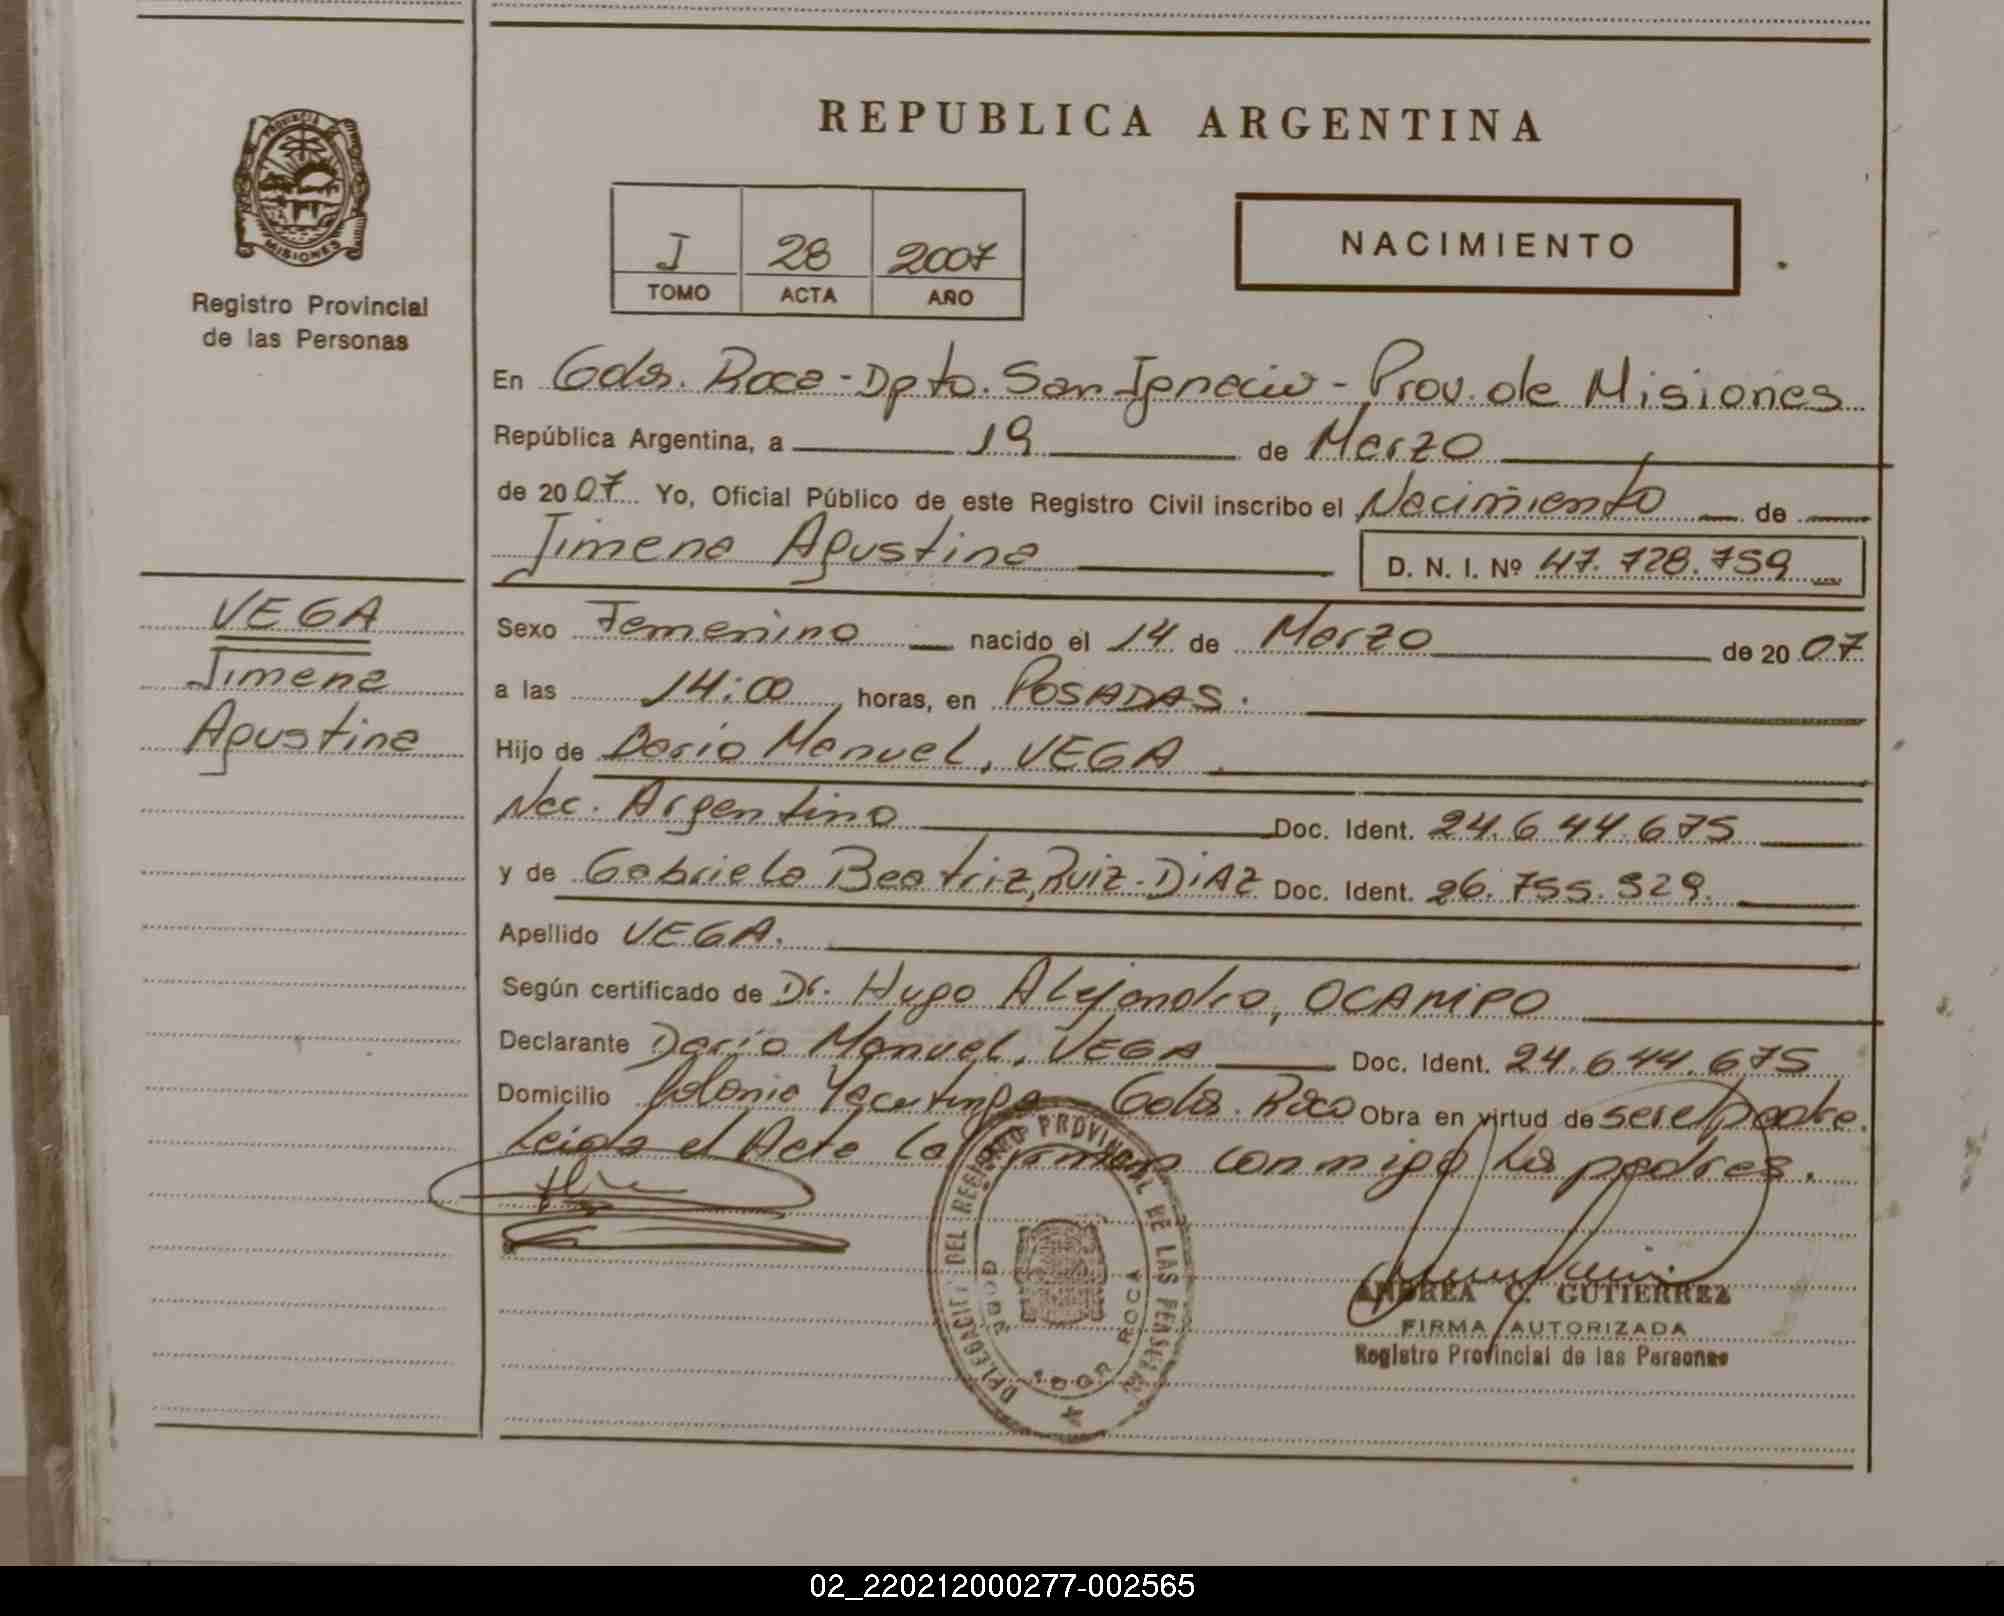 REPUBLICA ARGENTINA
PROVINCIA
MISIONES
Registro Provincial
de las Personas
J 28 2007
TOMO ACTA AÑO
NACIMIENTO
En Gdor. Roca - Dpto. San Ignacio - Prov. de Misiones
República Argentina, a 19 de Marzo
de 2007 Yo, Oficial Público de este Registro Civil inscribo el Nacimiento de
Jimena Agustina D. N. I. Nº 47.728.759
VEGA
Jimena
Agustina
Sexo Femenino nacido el 14 de Marzo de 2007
a las 14:00 horas, en POSADAS.
Hijo de Dario Manuel, VEGA
Nac. Argentino Doc. Ident. 24.644.675
y de Gabriela Beatriz, Ruiz-DiAZ Doc. Ident. 26.755.929.
Apellido VEGA.
Según certificado de Dr. Hugo Alejandro, OCAMPO
Declarante Dario Manuel, VEGA Doc. Ident. 24.644.675
Domicilio Colonia Yacutinga Gdor. Roca Obra en virtud de ser el padre.
Leida el Acta la firman conmigo los padres.
DELEGACION DEL REGISTRO PROVINCIAL DE LAS PERSONAS
GDOR ROCA
ANDREA C. GUTIERREZ
FIRMA AUTORIZADA
Registro Provincial de las Personas
02_220212000277-002565